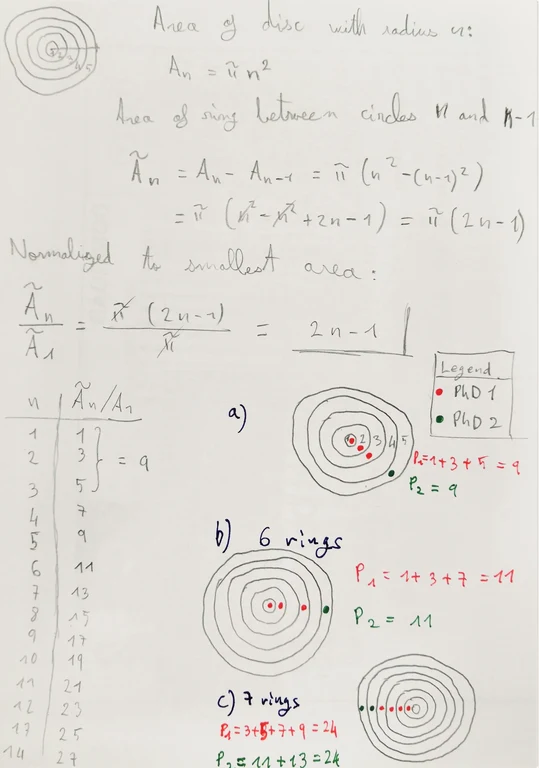 Area of disc with radius n:
Aₙ = π n²
Area of ring between circles n and n-1
Ãₙ = Aₙ - Aₙ₋₁ = π (n² - (n-1)²)
= π (n² - n² + 2n - 1) = π (2n - 1)
Normalized to smallest area:
Ãₙ / Ã₁ = π (2n - 1) / π = 2n - 1
1 2 3 4 5
Legend
PhD 1
PhD 2
n Ãₙ/A₁
1 1
2 3 = 9
3 5
4 7
5 9
6 11
7 13
8 15
9 17
10 19
11 21
12 23
13 25
14 27
a)
1 2 3 4 5
P₁ = 1 + 3 + 5 = 9
P₂ = 9
b) 6 rings
P₁ = 1 + 3 + 7 = 11
P₂ = 11
c) 7 rings
P₁ = 3 + 5 + 7 + 9 = 24
P₂ = 11 + 13 = 24